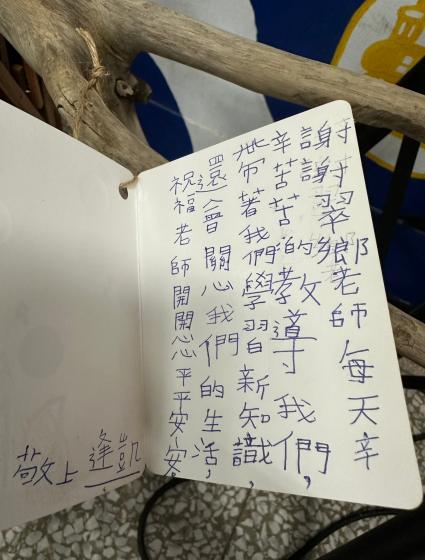 謝謝翠鄉老師每天辛
辛苦苦的教導我們，
帶著我們學習新知識，
還會關心我們的生活，
祝福老師開開心心平平安安
敬上 逢凱